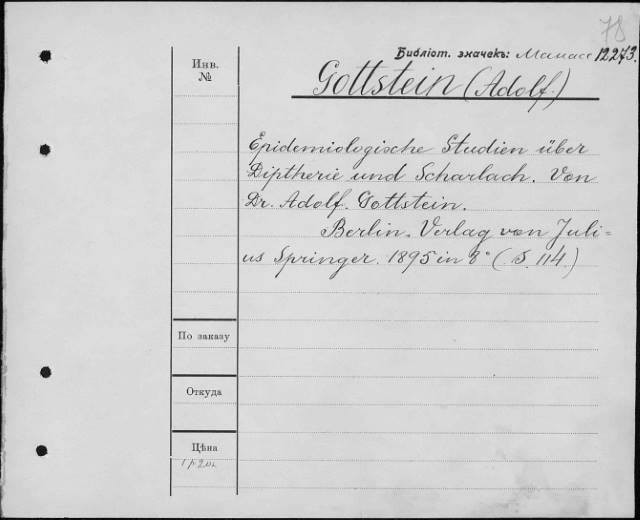 78
Библіот. значекъ: Манасс 12273.
Инв.
№
Gottstein (Adolf.)
Epidemiologische Studien über
Diptherie und Scharlach. Von
Dr. Adolf. Gottstein.
Berlin. Verlag von Juli=
us Springer. 1895 in 8° (S. 114.)
По заказу
Откуда
Цѣна